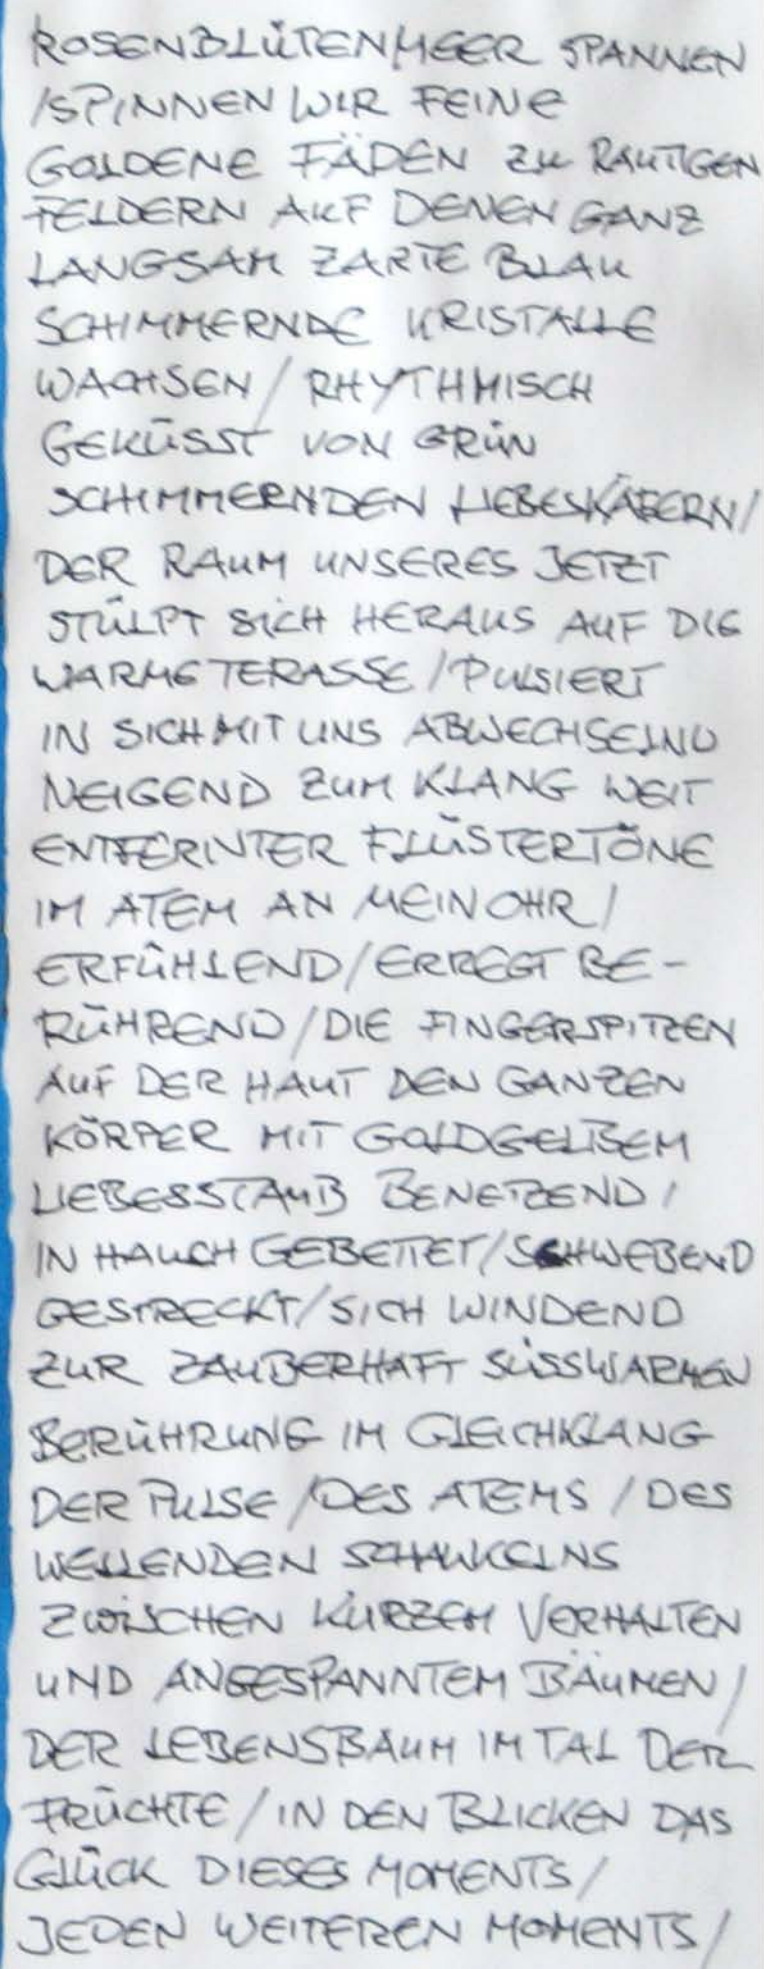 ROSENBLÜTENMEER SPANNEN
/SPINNEN WIR FEINE
GOLDENE FÄDEN ZU RAUTIGEN
FELDERN AUF DENEN GANZ
LANGSAM ZARTE BLAU
SCHIMMERNDE KRISTALLE
WACHSEN/RHYTHMISCH
GEKÜSST VON GRÜN
SCHIMMERNDEN LIEBESKÄFERN/
DER RAUM UNSERES JETZT
STÜLPT SICH HERAUS AUF DIE
WARME TERASSE/PULSIERT
IN SICH MIT UNS ABWECHSELND
NEIGEND ZUM KLANG WEIT
ENTFERNTER FLÜSTERTÖNE
IM ATEM AN MEIN OHR/
ERFÜHLEND/ERREGT BE-
RÜHREND/DIE FINGERSPITZEN
AUF DER HAUT DEN GANZEN
KÖRPER MIT GOLDGELBEM
LIEBESSTAUB BENETZEND/
IN HAUCH GEBETTET/SCHWEBEND
GESTRECKT/SICH WINDEND
ZUR ZAUBERHAFT SÜSSWARMEN
BERÜHRUNG IM GLEICHKLANG
DER PULSE/DES ATEMS/DES
WELLENDEN SCHAUKELNS
ZWISCHEN KURZEM VERHALTEN
UND ANGESPANNTEM BÄUMEN/
DER LEBENSBAUM IM TAL DER
FRÜCHTE/IN DEN BLICKEN DAS
GLÜCK DIESES MOMENTS/
JEDEN WEITEREN MOMENTS/